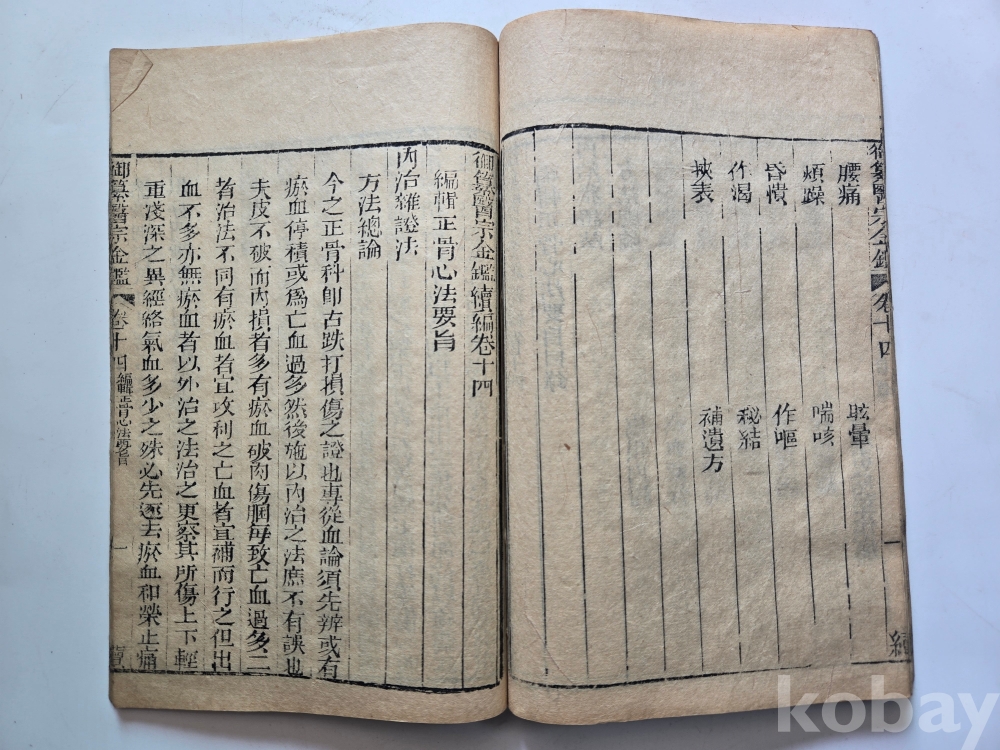 御纂醫宗金鑑 卷十四 一 續
腰痛 眩暈
煩躁 喘咳
昏憒 作嘔
作渴 秘結
挾表 補遺方
御纂醫宗金鑑續編卷十四
編輯正骨心法要旨
內治雜證法
方法總論
今之正骨科卽古跌打損傷之證也專從血論須先辨或有
瘀血停積或爲亡血過多然後施以內治之法庶不有誤也
夫皮不破而內損者多有瘀血破肉傷䐃每致亡血過多二
者治法不同有瘀血者宜攻利之亡血者宜補而行之但出
血不多亦無瘀血者以外治之法治之更察其所傷上下輕
重淺深之異經絡氣血多少之殊必先逐去瘀血和榮止痛
御纂醫宗金鑑 卷十四 編輯正骨心法要旨 一 續
kobay